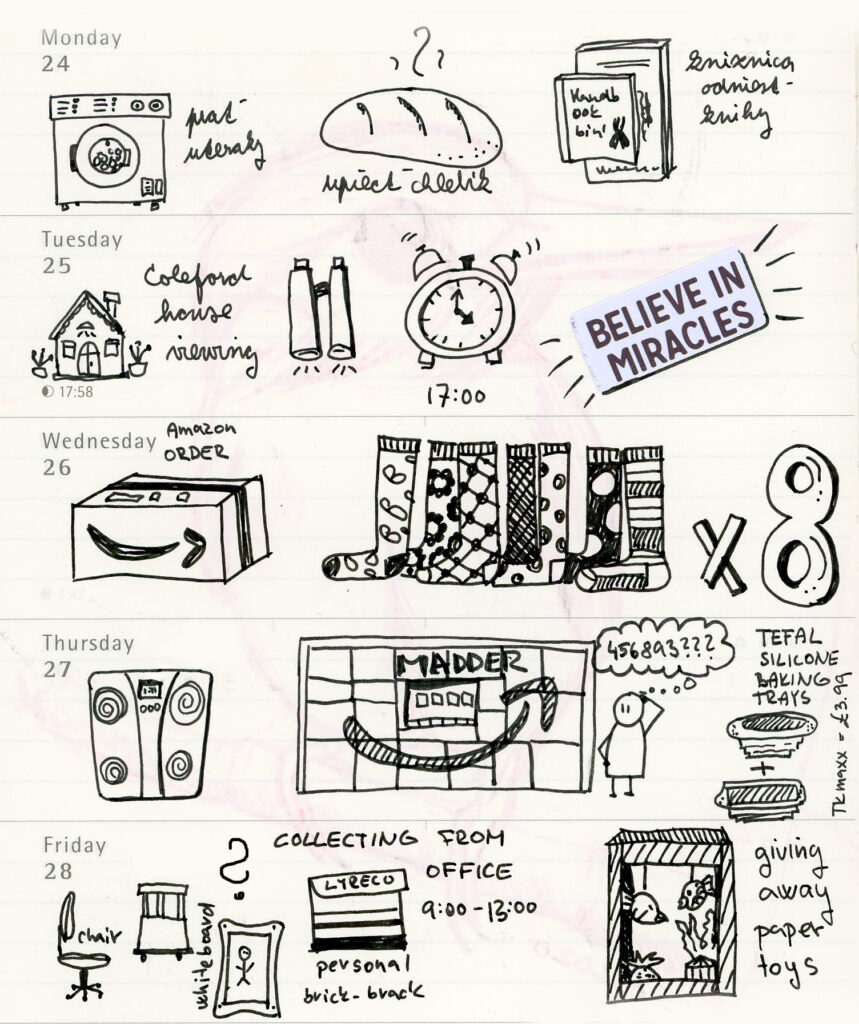 Monday
24
prať
uteraky
upiecť chlebik
knižnica
odniesť
knihy
Tuesday
25
Coleford
house
viewing
17:00
BELIEVE IN
MIRACLES
17:58
Wednesday
26
Amazon
ORDER
x 8
Thursday
27
MADDER
456893???
TEFAL
SILICONE
BAKING
TRAYS
+
TKmaxx = £3.99
Friday
28
COLLECTING FROM
OFFICE
9:00-13:00
chair
whiteboard
?
LYRECO
personal
brick-brack
giving
away
paper
toys